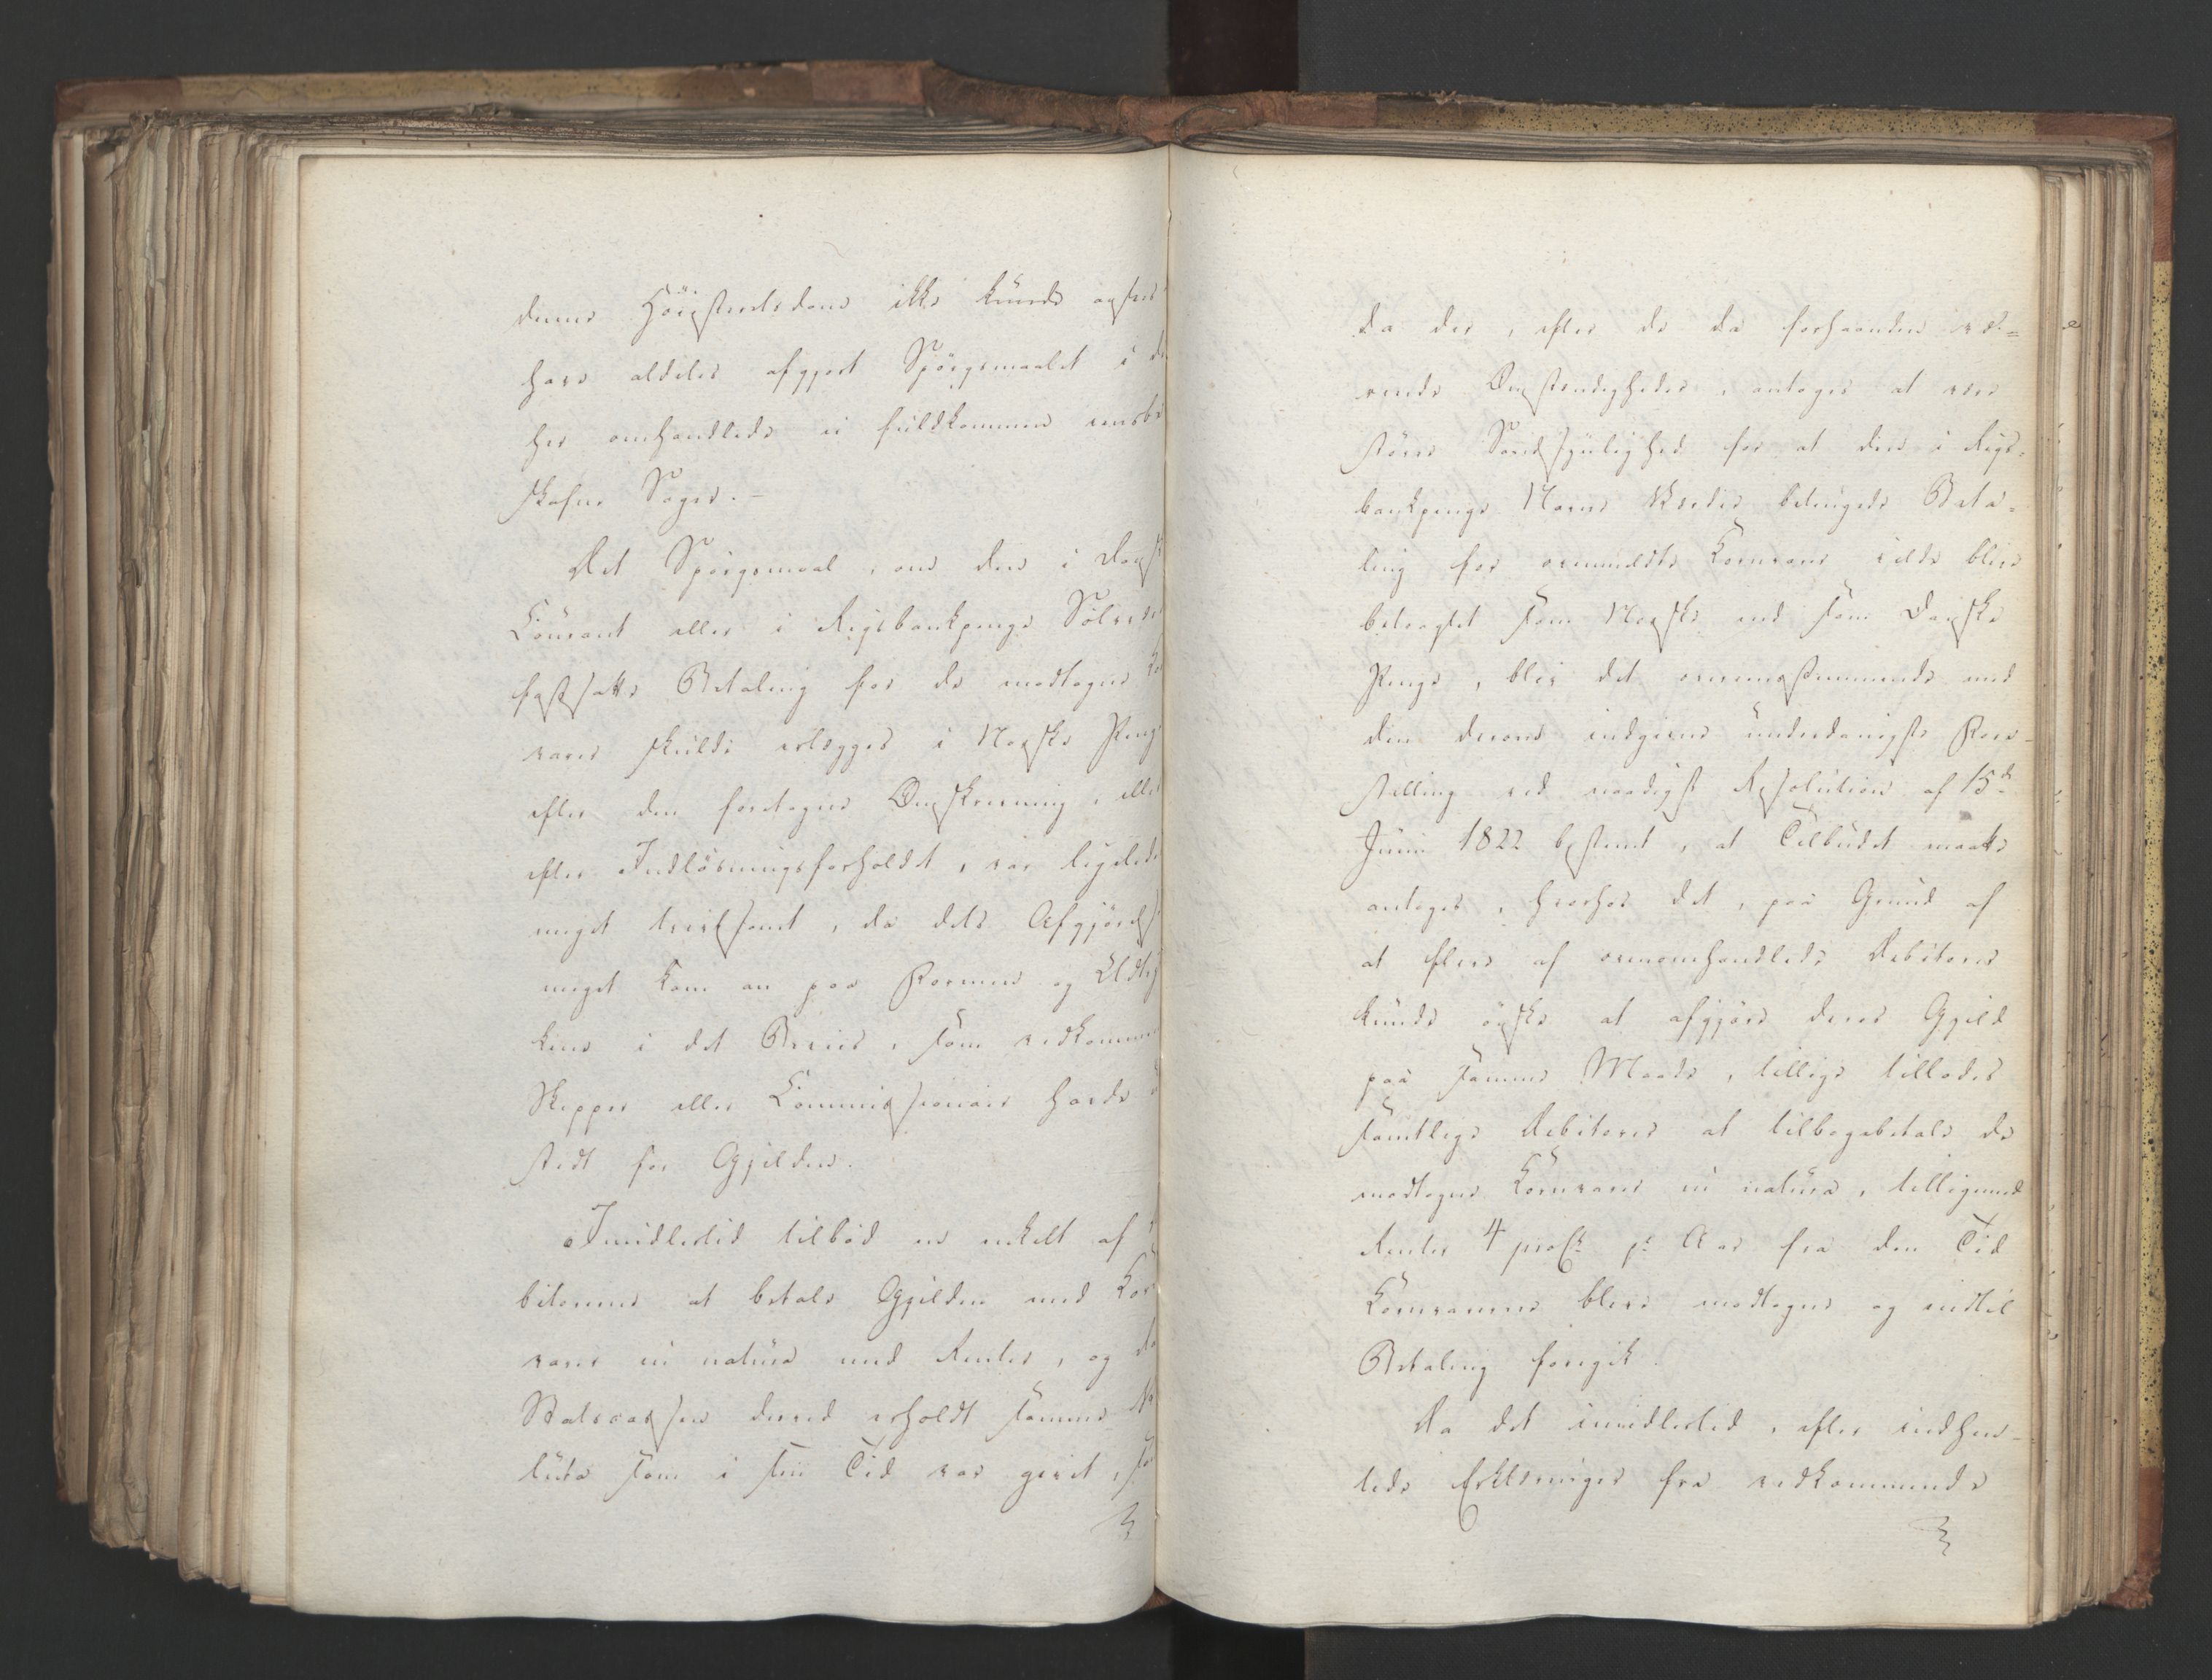 denne Höiesteretsdom ikke kunde ansees
have aldeles afgjort Spörgsmaalet i de
her omhandlede ei fuldkommen eensbe
skafne Sager. –
Det Spörgsmaal, om den i Dansk
Courant eller i Rigsbankpenge Sölvværdi
fastsatte Betaling for de modtagne Kor
varer skulde erlægges i Norske Penge
efter den foretagne Omskrivning, eller
efter Indlösningsforholdet, var ligeledes
meget tvivlsomt, da dets Afgjörelse
meget kom an paa Formen og Udtryk
kene i det Beviis, som vedkommende
Skipper eller Commissionair havde
stedt for Gjelden.
Imidlertid tilböd en enkelt af
bitorerne at betale Gjelden med Korn
varer in natura med Renter, og da
Statscassen derved erholdt samme Va
luta som i sin Tid var givet,
da der, efter de da forhaanden væ=
rende Omstændigheder, antoges at være
större Sandsynlighed for at den i Rigs=
bankpenge Navne Værdie betingede Beta=
ling for ovenmeldte Kornvarer vilde blive
betragtet som Norske end som Danske
Penge, blev det overeensstemmende med
den derom indgivne underdanigste Fore=
stilling ved naadigst Resolution af 15de
Juni 1822 bestemt, at Tilbudet maatte
antages, hvorhos det, paa Grund af
at flere af ovenomhandlede Debitorer
kunde önske at afgjöre deres Gjeld
paa samme Maade, tillige tillodes
samtlige Debitorer at tilbagebetale de
modtagne Kornvarer in natura, tilligemed
Renter 4 proCt pr Aar fra den Tid
Kornvarerne bleve modtagne og indtil
Betaling foregik.
Da det imidlertid, efter indhen=
tede Erklæringer fra vedkommende